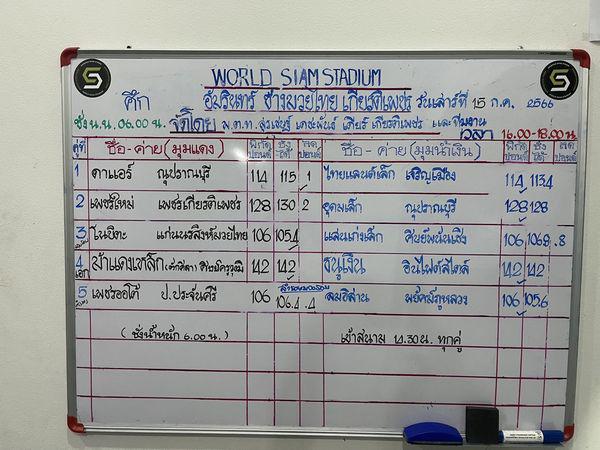 WORLD SIAM STADIUM
ศึก อัมรินทร์ ช้างมวยไทย เกียรติเพชร วันเสาร์ที่ 15 ก.ค. 2566
ชั่ง น.น. 06.00 น. จัดโดย พ.ต.ท. สุรเชษฐ์ เตชะพันธ์ เสี่ยร์ เกียรติเพชร และทีมงาน เวลา 16.00-18.00 น.
คู่ที่ ชื่อ-ค่าย (มุมแดง) พิกัด ปอนด์ ชั่ง ได้ ลด ปอนด์ ชื่อ-ค่าย (มุมน้ำเงิน) พิกัด ปอนด์ ชั่ง ได้ ลด ปอนด์
1 ดาแอร์ ณุปราณบุรี 114 115 .1 ไทยแลนด์เล็ก เจริญเมือง 114 113.4
2 เพชรใหม่ เพชรเกียรติเพชร 128 130 .2 อุดมเล็ก ณุปราณบุรี 128 128
3 โนบิตะ แก่นนรสิงห์มวยไทย 106 105.4 แสนเก่งเล็ก ศิษย์พนันเชิง 106 106.8 .8
4 เอก ม้าแดงเหล็ก 142 142 ธนูเงิน อินไฟต์สไตล์ 142 142
5 เพชรออโต้ ป.ประจันศรี 106 106.4 .4 ลมอีสาน พยัคฆ์ภูหลวง 106 105.6
(ชั่งน้ำหนัก 6.00 น.) เข้าสนาม 14.30 น. ทุกคู่